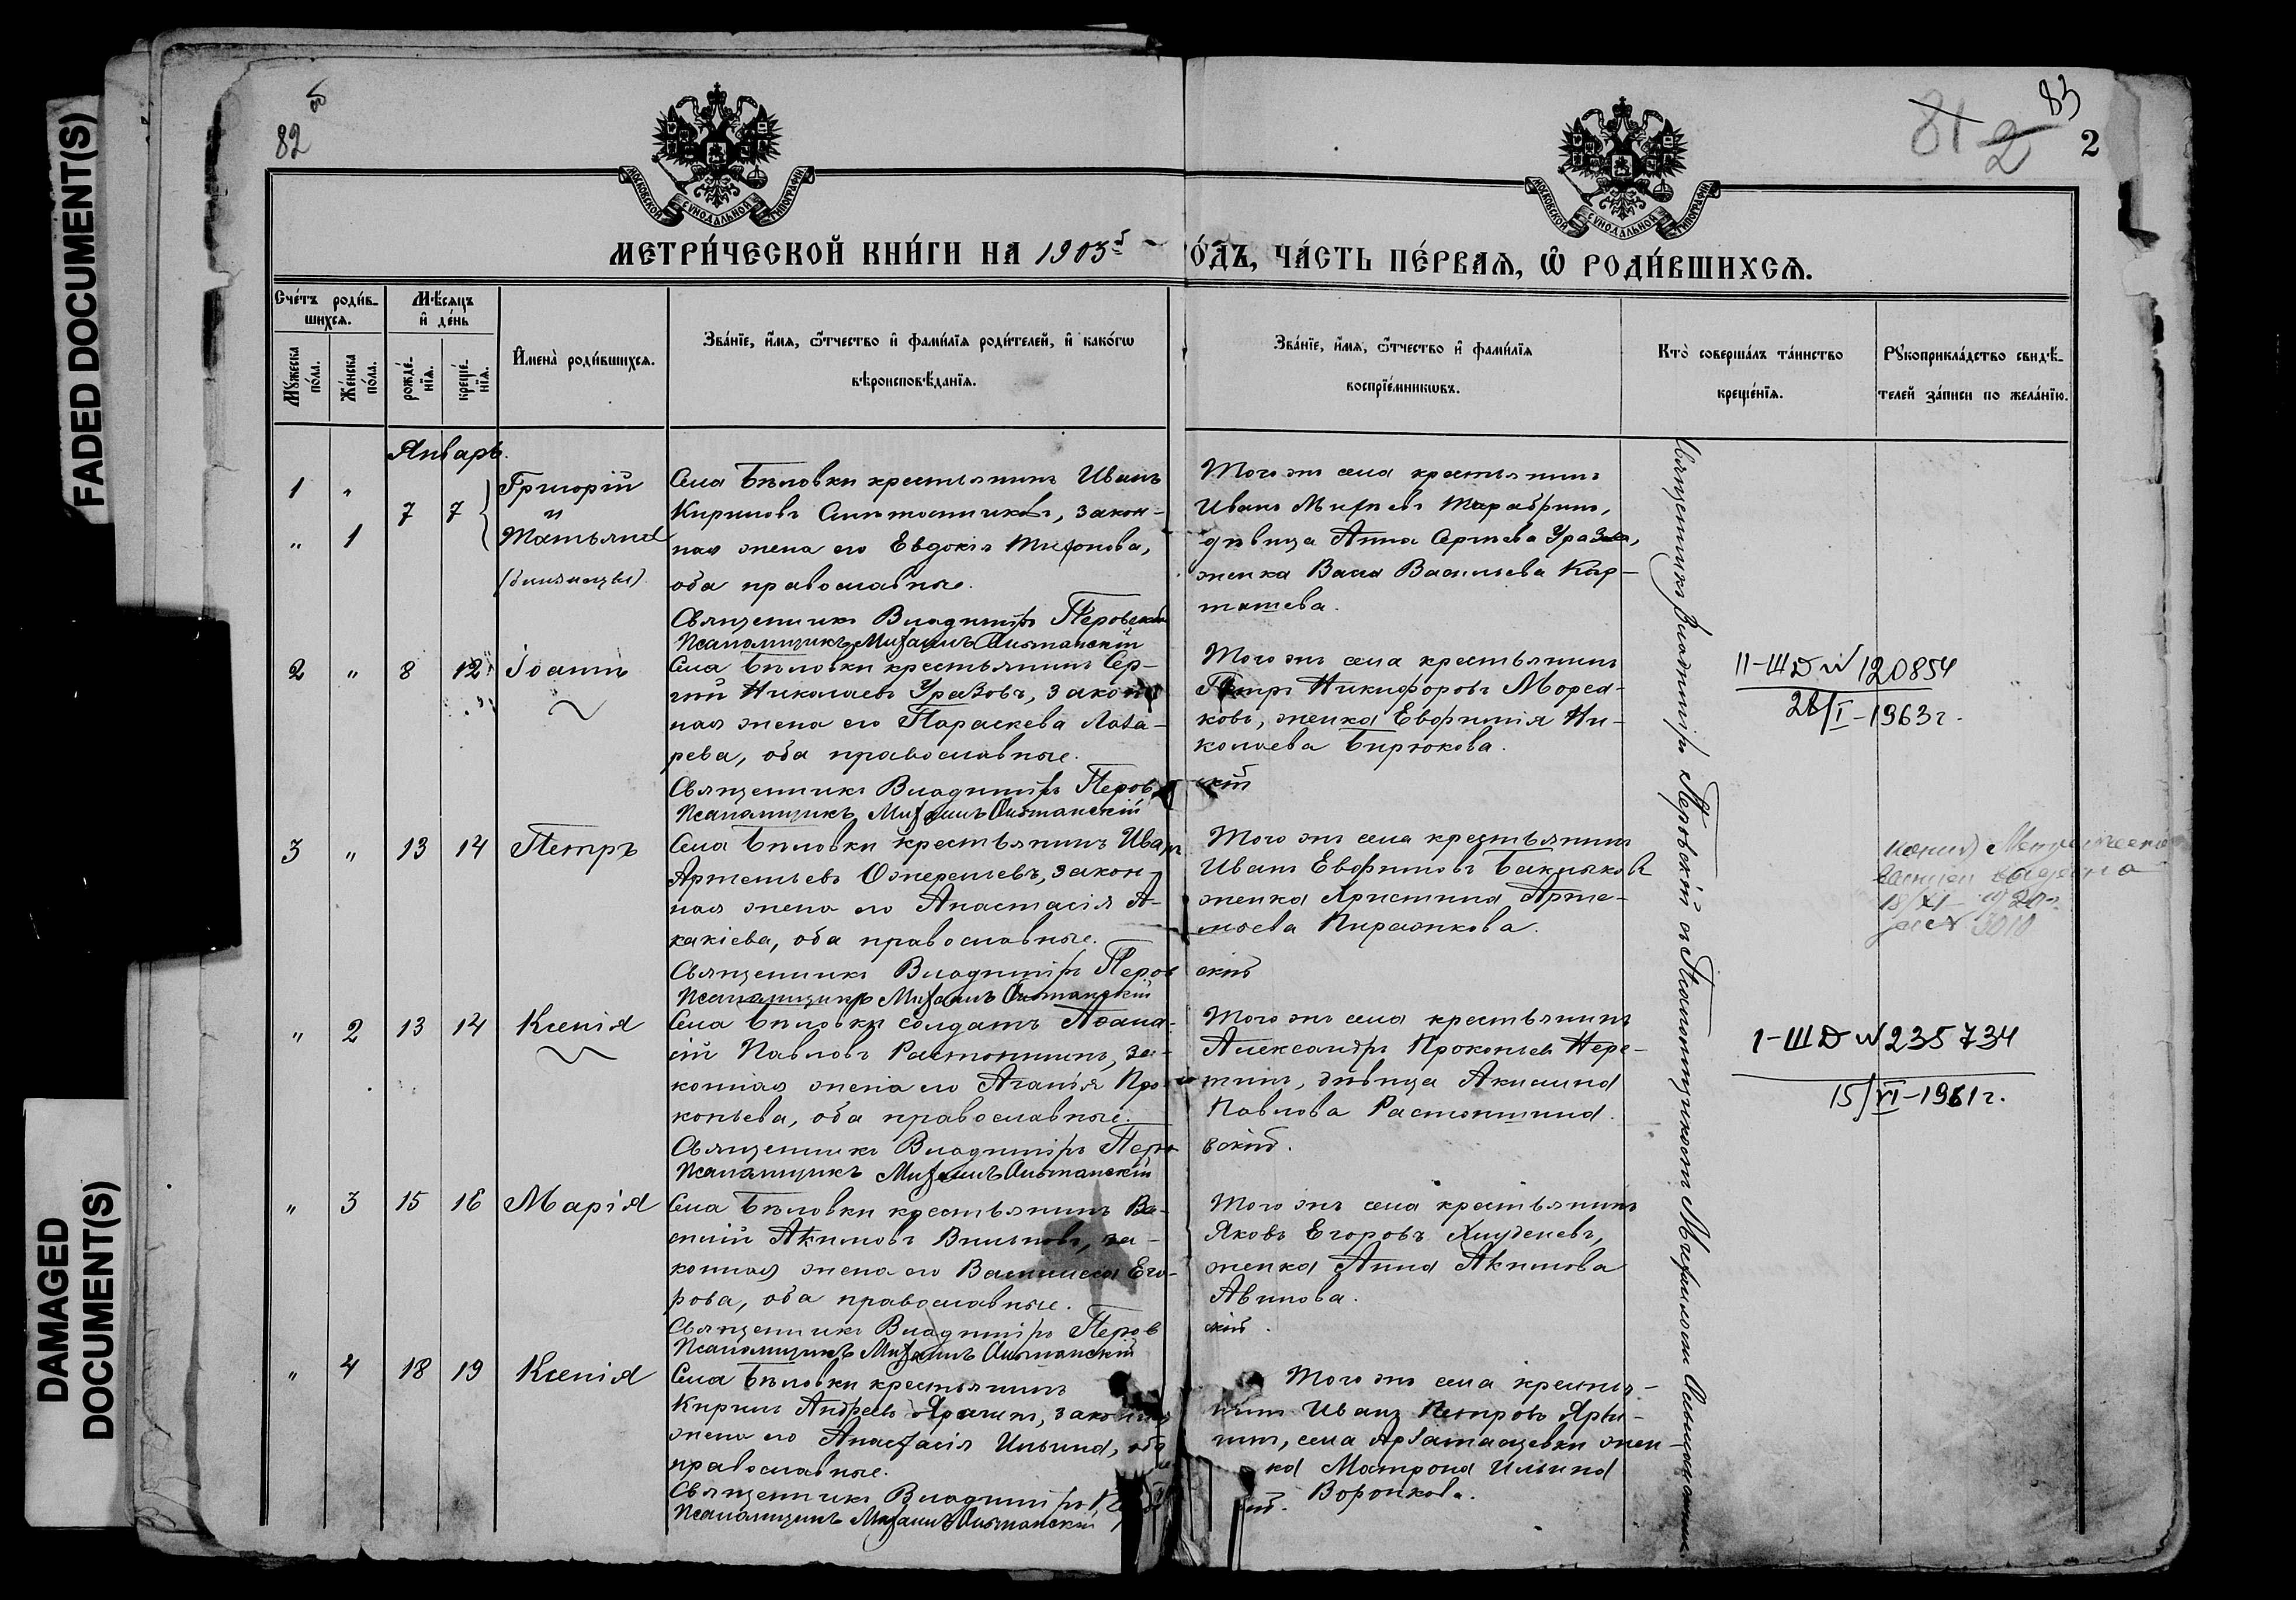 FADED DOCUMENT(S)
DAMAGED
DOCUMENT(S)
82 об
83
81
2
2
МОСКОВСКОЙ СѴНОДАЛЬНОЙ ТИПОГРАФІИ
МОСКОВСКОЙ СѴНОДАЛЬНОЙ ТИПОГРАФІИ
МЕТРИ́ЧЕСКОЙ КНИ́ГИ НА 1905 ‑ О́ДЪ, ЧА́СТЬ ПЕ́РВАѦ, Ѡ҆ РОДИ́ВШИХСѦ.
Сче́тъ роди́в-
шихсѧ.
Мꙋ́жеска
по́ла.
Же́нска
по́ла.
Мѣ́сѧцъ
и҆ де́нь
рожде́-
нїѧ.
креще́-
нїѧ.
И҆мена̀ роди́вшихсѧ.
Зва́нїе, и҆́мѧ, ѻ҆́тчество и҆ фами́лїѧ роди́телей, и҆ како́гѡ
вѣроисповѣ́данїѧ.
Зва́нїе, и҆́мѧ, ѻ҆́тчество и҆ фами́лїѧ
воспрїе́мникѡвъ.
Кто̀ соверша́лъ та́инство
креще́нїѧ.
Рꙋкоприкла́дство свидѣ́-
телей за́писи по жела́нїю.
Январь.
1 "
" 1
7 7
Григорій
и
Татьяна
(близнецы).
Села Бѣловки крестьянинъ Иванъ
Кириловъ, закон-
ная жена его Евдокія Тихонова,
оба православные.
Священникъ Владиміръ Перовскій
Псаломщикъ Михаилъ Альтанскій
Того же села крестьянинъ
Иванъ Михѣевъ Тарабринъ,
дѣвица Анна Сергѣева Уразова,
женка Васса Васильева Кар-
ташева.
2 " 8 12 Іоаннъ
Села Бѣловки крестьянинъ Сер-
гій Николаевъ Уразовъ, закон-
ная жена его Параскева Лаза-
рева, оба православные.
Священникъ Владиміръ Перовскій
Псаломщикъ Михаилъ Альтанскій
Того же села крестьянинъ
Петръ Никифоровъ Морса-
ковъ, женка Евфимія Ни-
колаева Бирюкова.
II-ШД № 120854
28/I-1963г.
3 " 13 14 Петръ
Села Бѣловки крестьянинъ Иванъ
Артемьевъ Ожерельевъ, закон-
ная жена его Анастасія А-
какіева, оба православные.
Священникъ Владиміръ Перовскій
Псаломщикъ Михаилъ Альтанскій
Того же села крестьянинъ
Иванъ Евфимовъ Бакляковъ
женка Христина Арте-
мьева Пирожкова.
выдана
18/XI
за № 3010
" 2 13 14 Ксенія
Села Бѣловки солдатъ Аѳана-
сій Павловъ Растопшинъ, за-
конная жена его Агаѳія Про-
копьева, оба православные.
Священникъ Владиміръ Перовскій.
Псаломщикъ Михаилъ Альтанскій
Того же села крестьянинъ
Александръ Прокопьевъ Нере-
тинъ, дѣвица Акилина
Павлова Растопшина.
I-ШД № 235734
15/VI-1961г.
" 3 15 16 Марія
Села Бѣловки крестьянинъ Ва-
силій Акимовъ, за-
конная жена его Василиса Его-
рова, оба православные.
Священникъ Владиміръ Перовскій.
Псаломщикъ Михаилъ Альтанскій
Того же села крестьянинъ
Яковъ Егоровъ Хлуденевъ,
женка Анна Акимова
Авилова.
" 4 18 19 Ксенія
Села Бѣловки крестьянинъ
Кирилъ Андреевъ Ярыгинъ, законная
жена его Анастасія Ильина, оба
православные.
Священникъ Владиміръ
Псаломщикъ Михаилъ Альтанскій
Того же села крестья-
нинъ Иванъ Петровъ Яры-
гинъ, села жен-
ка Матрона Ильина
Воронкова.
Священникъ Владиміръ Перовскій съ Псаломщикомъ Михаиломъ Альтанскимъ.